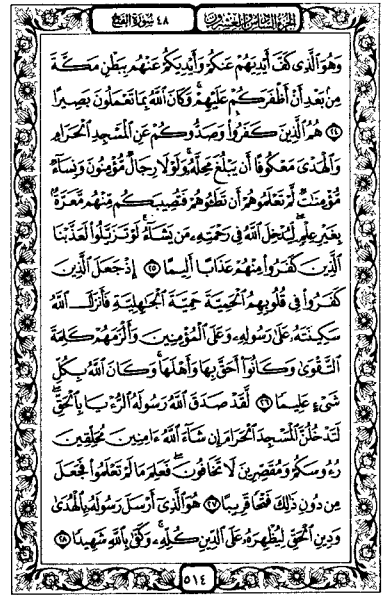 الجزء السادس والعشرون ٤٨ سورة الفتح
وَهُوَ ٱلَّذِى كَفَّ أَيْدِيَهُمْ عَنكُمْ وَأَيْدِيَكُمْ عَنْهُم بِبَطْنِ مَكَّةَ
مِنۢ بَعْدِ أَنْ أَظْفَرَكُمْ عَلَيْهِمْ ۚ وَكَانَ ٱللَّهُ بِمَا تَعْمَلُونَ بَصِيرًا
﴿٢٤﴾ هُمُ ٱلَّذِينَ كَفَرُوا۟ وَصَدُّوكُمْ عَنِ ٱلْمَسْجِدِ ٱلْحَرَامِ
وَٱلْهَدْىَ مَعْكُوفًا أَن يَبْلُغَ مَحِلَّهُۥ ۚ وَلَوْلَا رِجَالٌ مُّؤْمِنُونَ وَنِسَآءٌ
مُّؤْمِنَٰتٌ لَّمْ تَعْلَمُوهُمْ أَن تَطَـُٔوهُمْ فَتُصِيبَكُم مِّنْهُم مَّعَرَّةٌۢ
بِغَيْرِ عِلْمٍ ۖ لِّيُدْخِلَ ٱللَّهُ فِى رَحْمَتِهِۦ مَن يَشَآءُ ۚ لَوْ تَزَيَّلُوا۟ لَعَذَّبْنَا
ٱلَّذِينَ كَفَرُوا۟ مِنْهُمْ عَذَابًا أَلِيمًا ﴿٢٥﴾ إِذْ جَعَلَ ٱلَّذِينَ
كَفَرُوا۟ فِى قُلُوبِهِمُ ٱلْحَمِيَّةَ حَمِيَّةَ ٱلْجَٰهِلِيَّةِ فَأَنزَلَ ٱللَّهُ
سَكِينَتَهُۥ عَلَىٰ رَسُولِهِۦ وَعَلَى ٱلْمُؤْمِنِينَ وَأَلْزَمَهُمْ كَلِمَةَ
ٱلتَّقْوَىٰ وَكَانُوٓا۟ أَحَقَّ بِهَا وَأَهْلَهَا ۚ وَكَانَ ٱللَّهُ بِكُلِّ
شَىْءٍ عَلِيمًا ﴿٢٦﴾ لَّقَدْ صَدَقَ ٱللَّهُ رَسُولَهُ ٱلرُّءْيَا بِٱلْحَقِّ ۖ
لَتَدْخُلُنَّ ٱلْمَسْجِدَ ٱلْحَرَامَ إِن شَآءَ ٱللَّهُ ءَامِنِينَ مُحَلِّقِينَ
رُءُوسَكُمْ وَمُقَصِّرِينَ لَا تَخَافُونَ ۖ فَعَلِمَ مَا لَمْ تَعْلَمُوا۟ فَجَعَلَ
مِن دُونِ ذَٰلِكَ فَتْحًا قَرِيبًا ﴿٢٧﴾ هُوَ ٱلَّذِىٓ أَرْسَلَ رَسُولَهُۥ بِٱلْهُدَىٰ
وَدِينِ ٱلْحَقِّ لِيُظْهِرَهُۥ عَلَى ٱلدِّينِ كُلِّهِۦ ۚ وَكَفَىٰ بِٱللَّهِ شَهِيدًا ﴿٢٨﴾
٥١٤